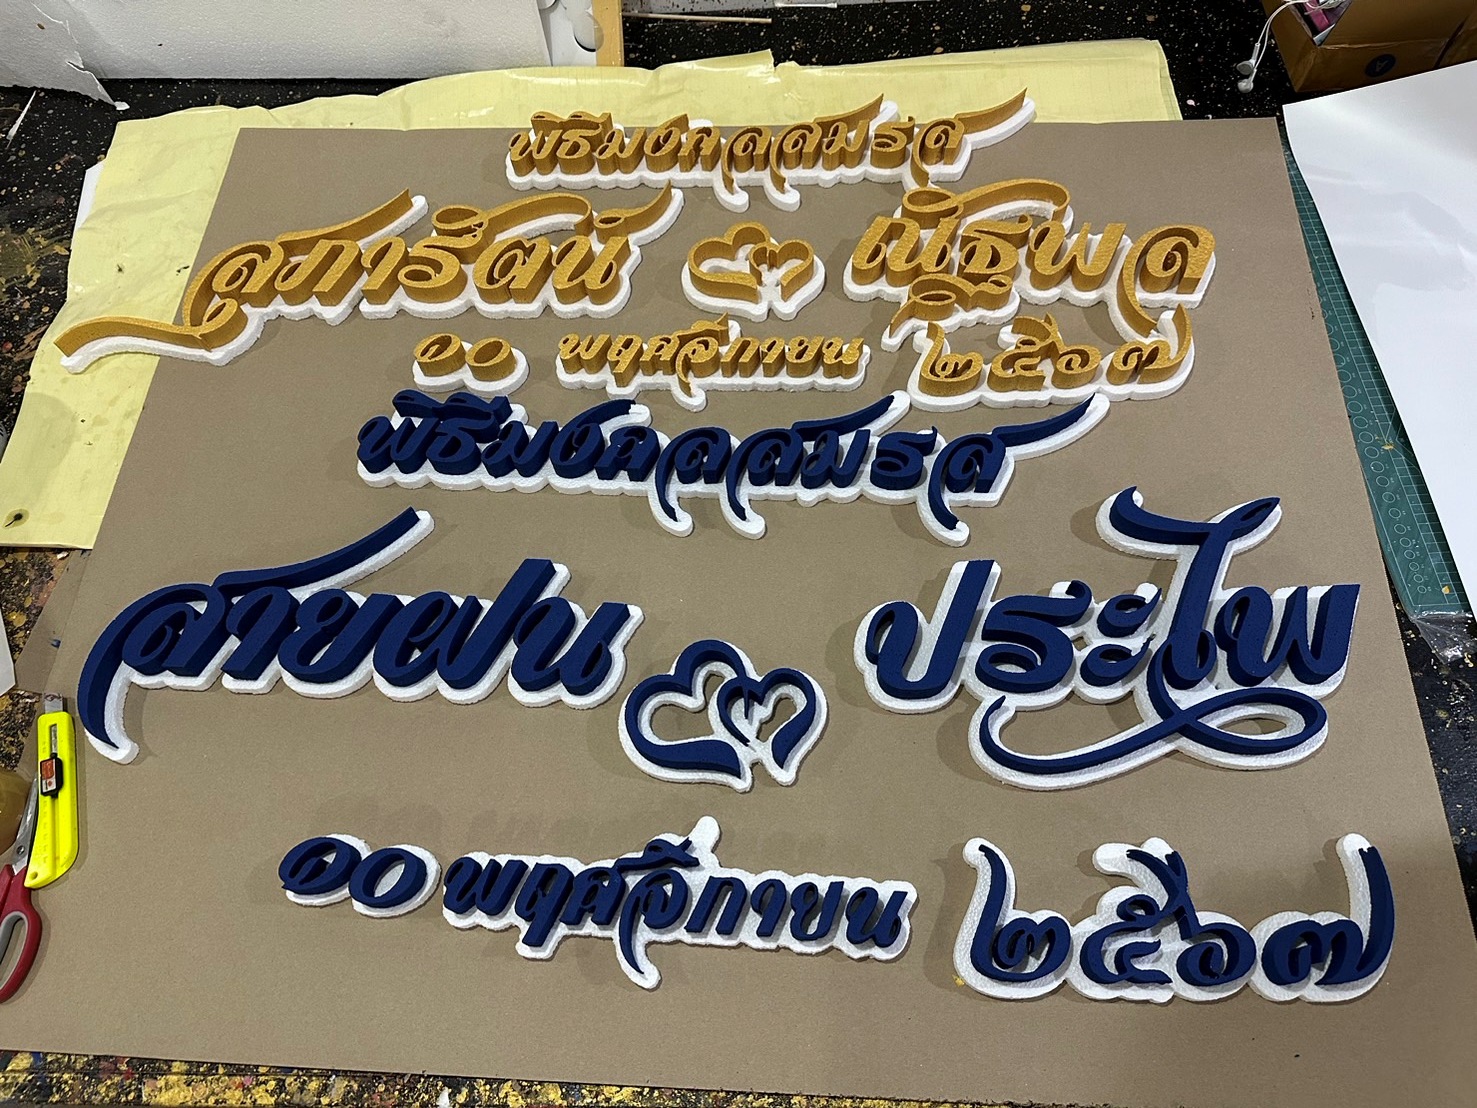 พิธีมงคลสมรส
สุภารัตน์ ณัฐพล
๑๐ พฤศจิกายน ๒๕๖๗
พิธีมงคลสมรส
สายฝน ประไพ
๑๐ พฤศจิกายน ๒๕๖๗